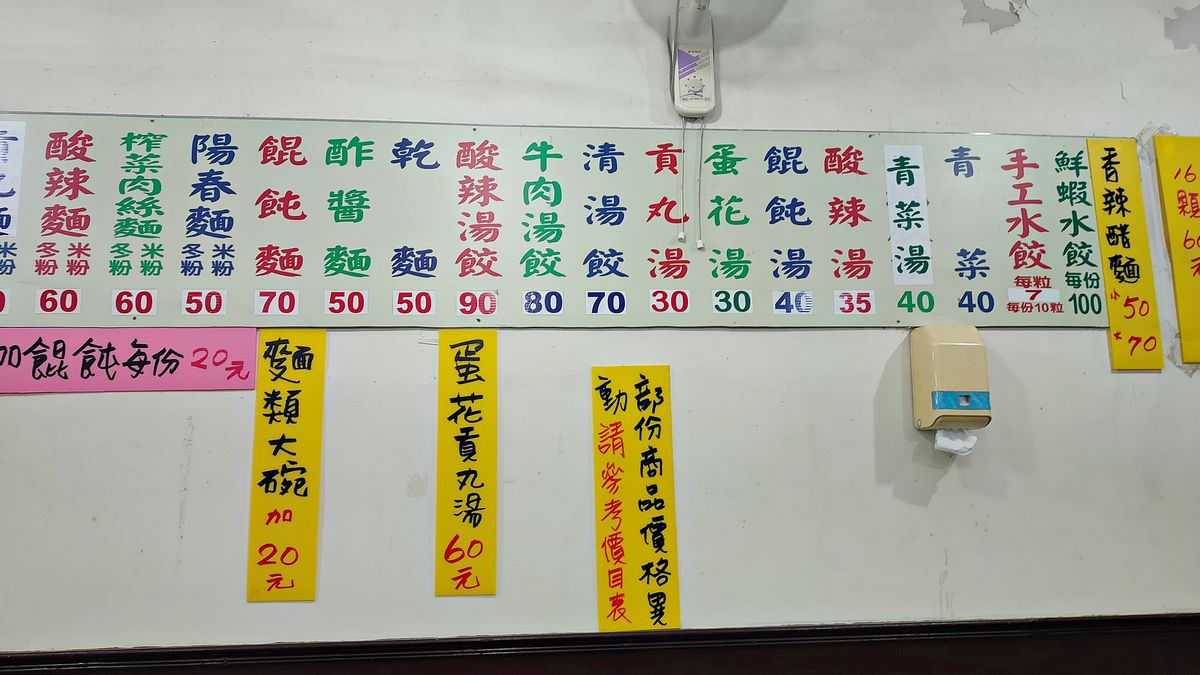 丸麵
米粉
冬粉
酸辣麵
米粉
冬粉
60
榨菜肉絲麵
米粉
冬粉
60
陽春麵
米粉
冬粉
50
餛飩麵
70
酢醬麵
50
乾麵
50
酸辣湯餃
90
牛肉湯餃
80
清湯餃
70
貢丸湯
30
蛋花湯
30
餛飩湯
40
酸辣湯
35
青菜湯
40
青菜
40
手工水餃
每粒
7
每份10粒
鮮蝦水餃
每份
100
香辣醋麵
小50
大70
16
顆
60
元
加餛飩每份20元
麵類大碗加20元
蛋花貢丸湯60元
部份商品價格異
動請參考價目表